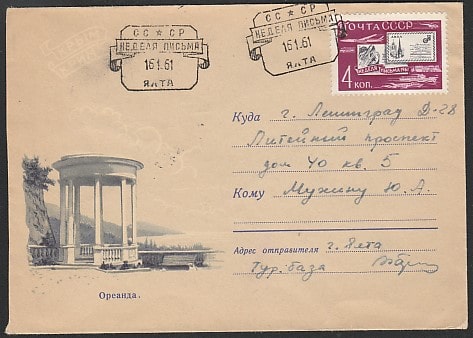 СС★СР
НЕДЕЛЯ ПИСЬМА
15.1.61
ЯЛТА
СС★СР
НЕДЕЛЯ ПИСЬМА
15.1.61
ЯЛТА
ПОЧТА СССР
НЕДЕЛЯ ПИСЬМА
4 КОП.
Куда г. Ленинград Д-28
Литейный проспект
дом 40 кв. 5
Кому Мужину Ю. А.
Адрес отправителя г. Ялта
Тур. база
Ореанда.